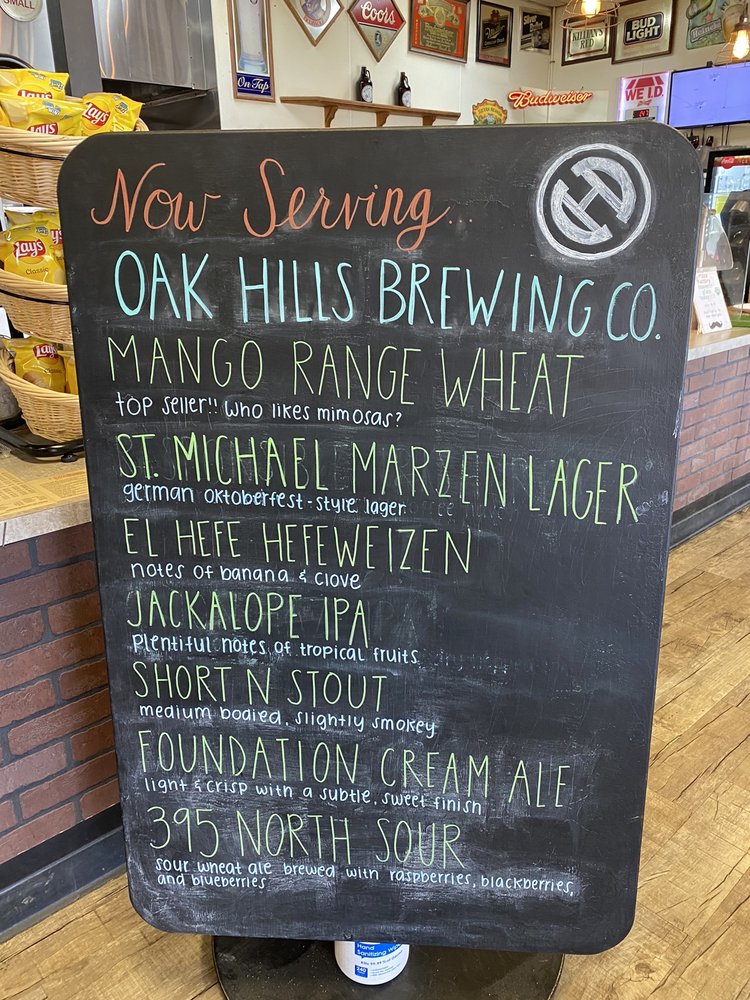 SMALL
Coors
On Tap
KILLIAN'S
RED
BUD
LIGHT
Budweiser
WE I.D.
Lay's
Lay's
Lay's
Lay's
Classic
Lay's
Now Serving...
OAK HILLS BREWING CO.
MANGO RANGE WHEAT
top seller!! who likes mimosas?
ST. MICHAEL MARZEN LAGER
german oktoberfest-style lager
EL HEFE HEFEWEIZEN
notes of banana & clove
JACKALOPE IPA
plentiful notes of tropical fruits
SHORT N STOUT
medium bodied, slightly smokey
FOUNDATION CREAM ALE
light & crisp with a subtle, sweet finish
395 NORTH SOUR
sour wheat ale brewed with raspberries, blackberries,
and blueberries
Hand
Sanitizing Wipes
240